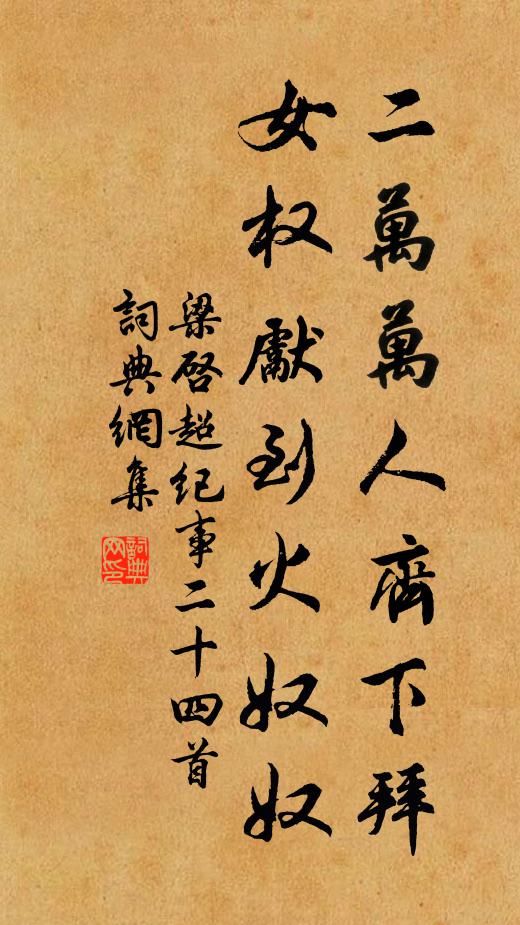 二萬萬人齊下拜
女权獻到火奴奴
梁啓超纪事二十四首
詞典網集
詞典網印